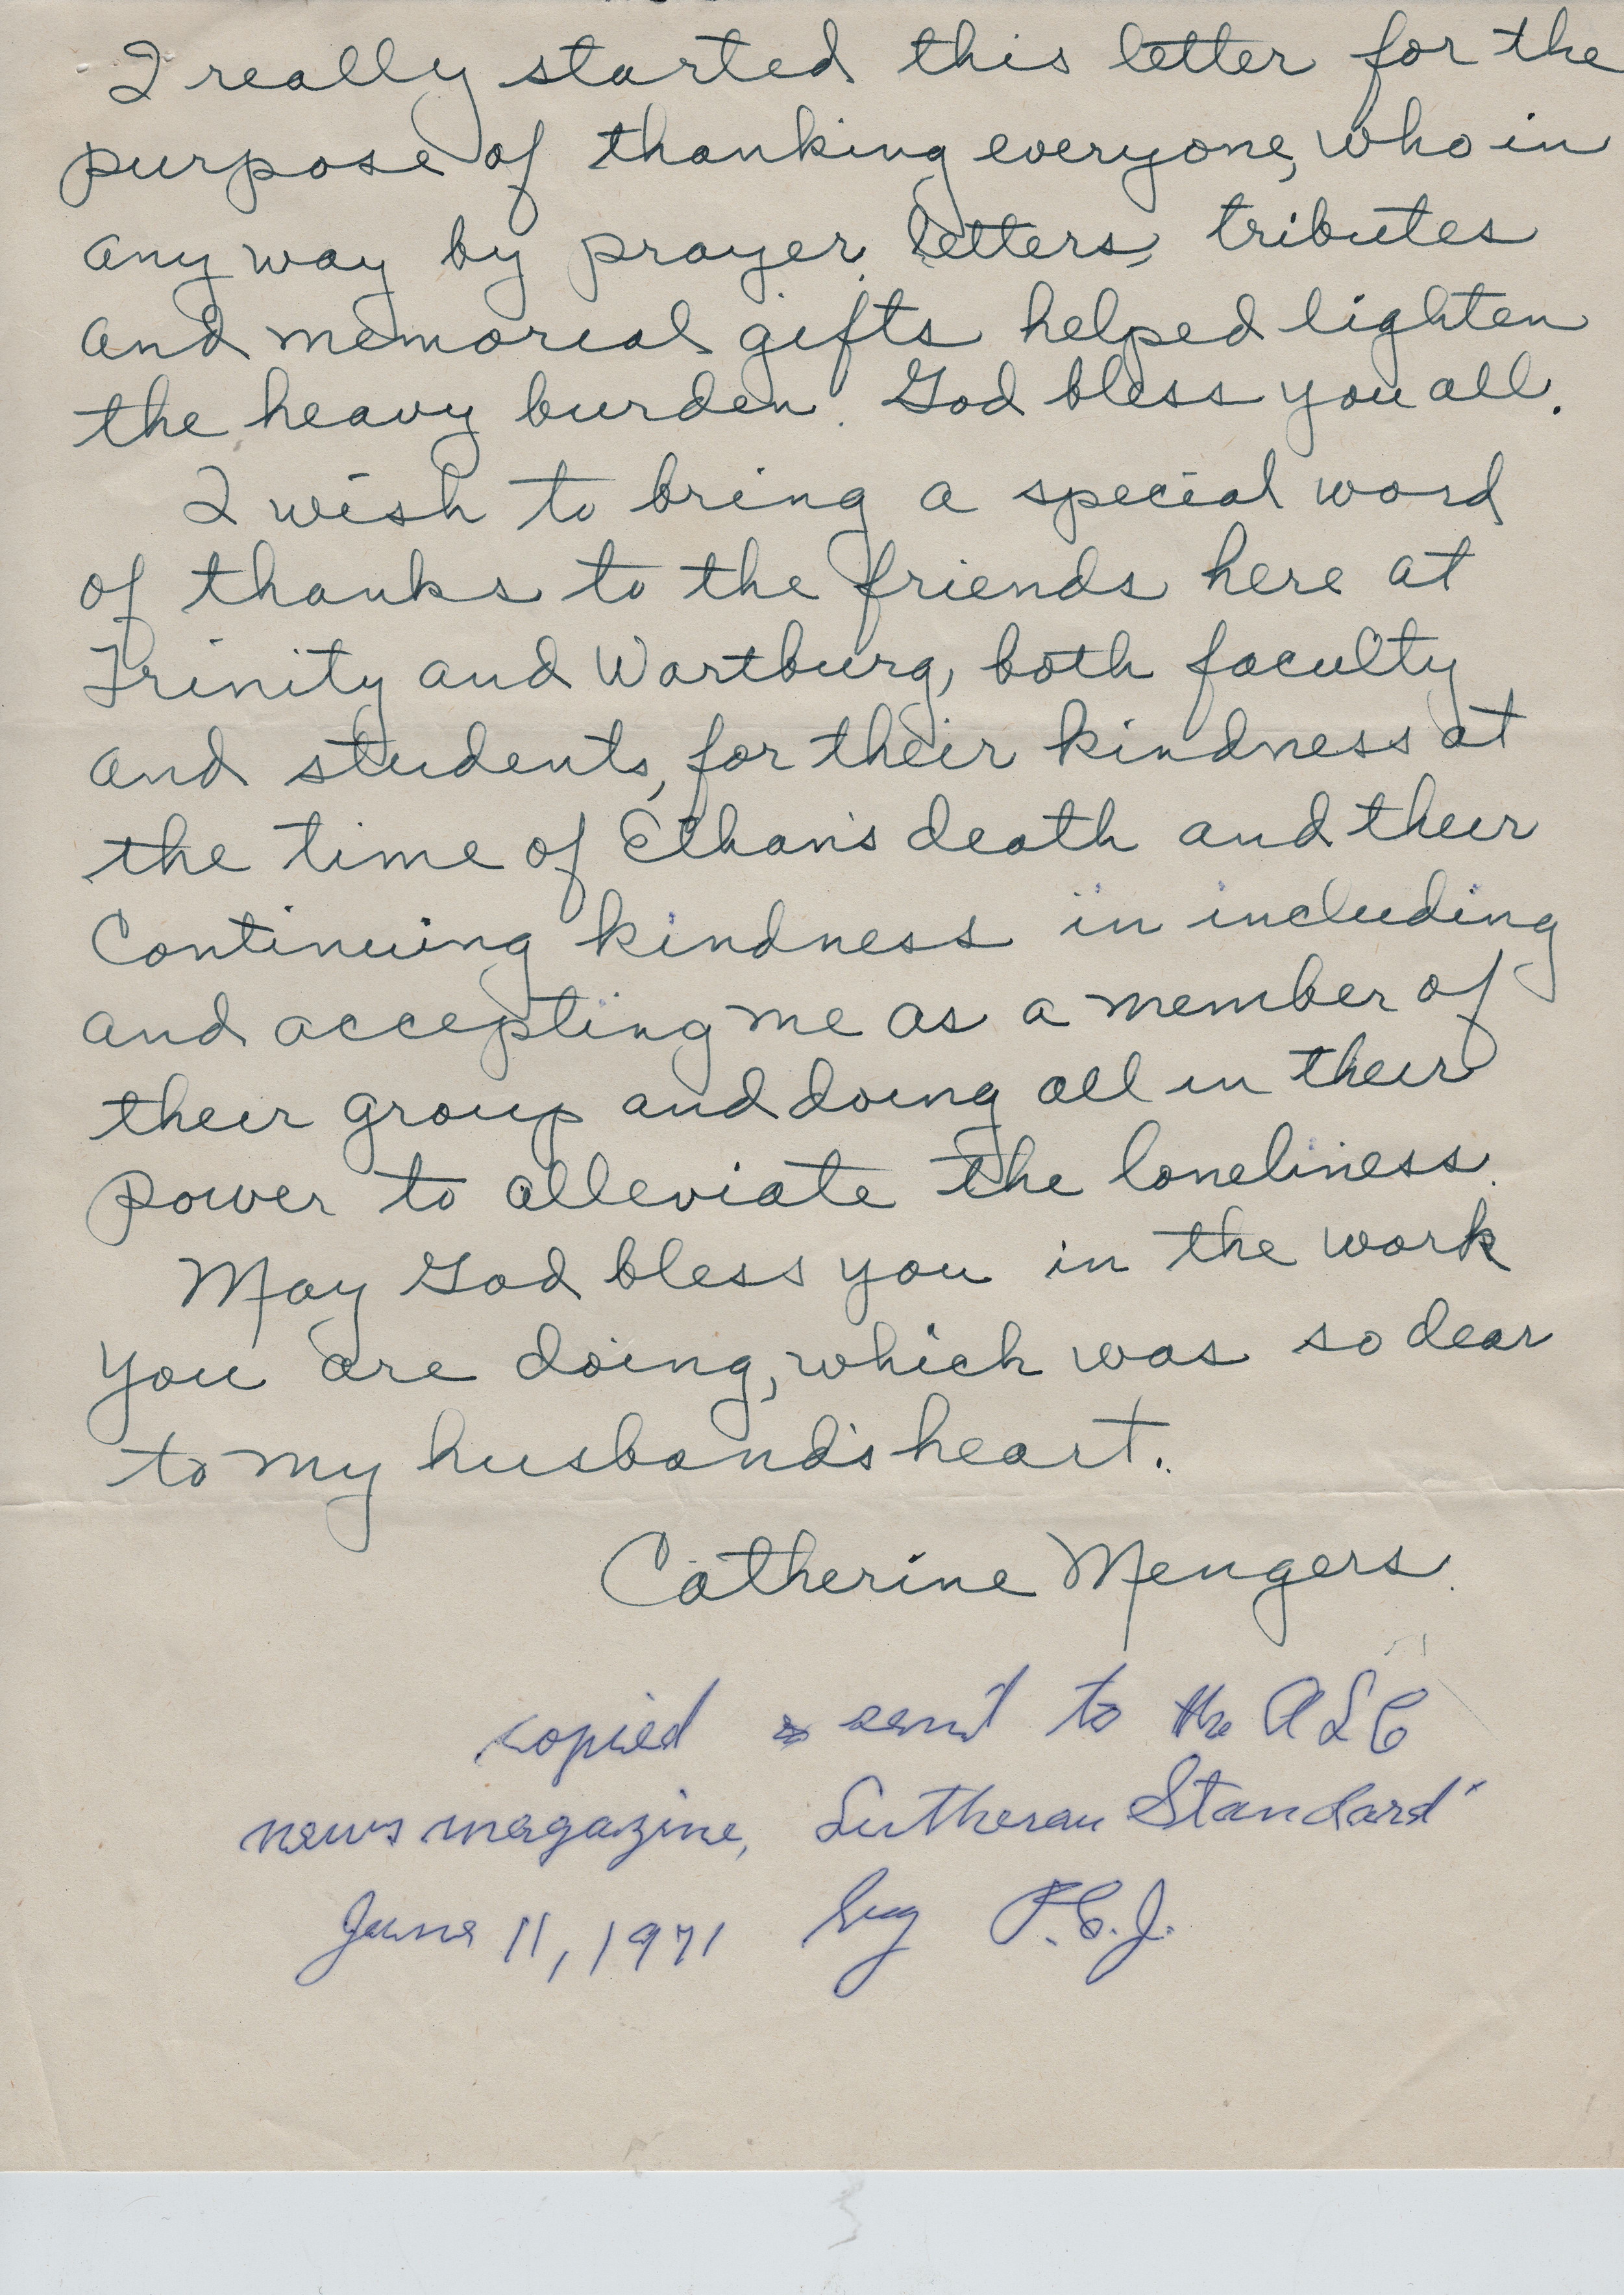 I really started this letter for the
purpose of thanking everyone, who in
any way by prayer, letters, tributes
and memorial gifts helped lighten
the heavy burden. God bless you all.
I wish to bring a special word
of thanks to the friends here at
Trinity and Wartburg, both faculty
and students, for their kindness at
the time of Ethan's death and their
continuing kindness in including
and accepting me as a member of
their group and doing all in their
power to alleviate the loneliness.
May God bless you in the work
you are doing, which was so dear
to my husband's heart.
Catherine Mengers.
copied & sent to the ALC
news magazine, Lutheran Standard"
June 11, 1971 by F.C.J.
3